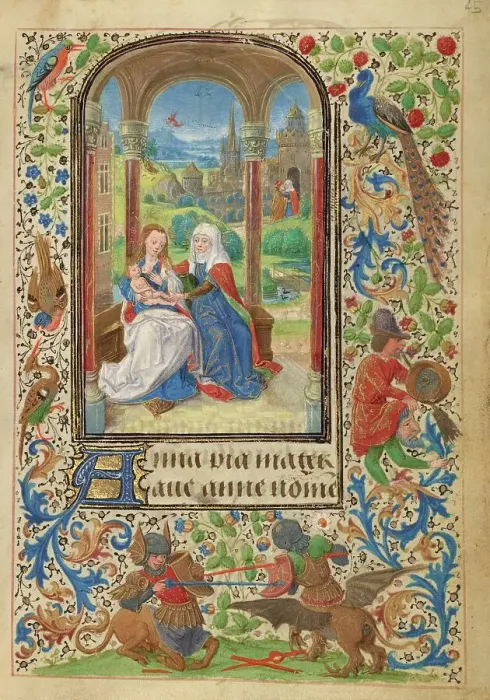 45
Anna pia mater
aue anne nome